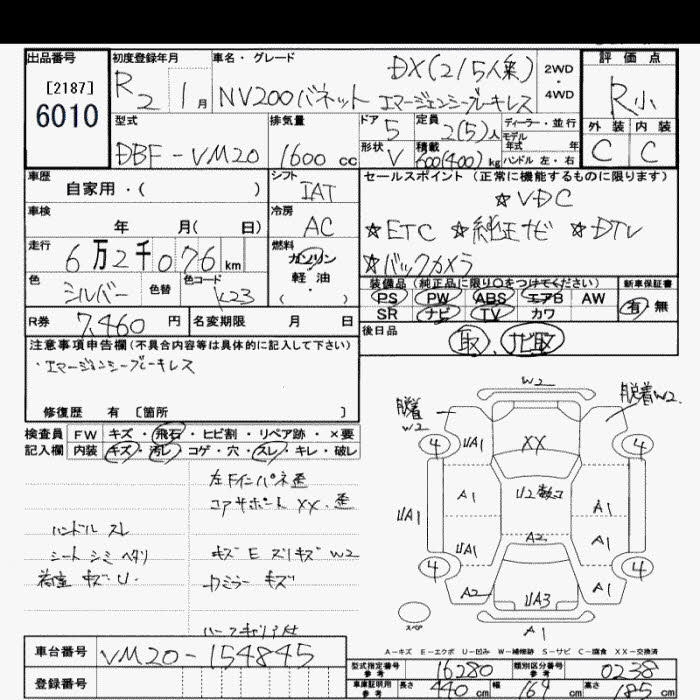 出品番号 初度登録年月 車名・グレード 評価点
[2187]
6010
R2 1月 NV200バネット DX(2/5人乗) エマージェンシーブレーキレス 2WD・4WD R小
型式 排気量 ドア 定員 ディーラー・並行 外装 内装
DBF-VM20 1600cc 5 2(5)人 モデル年式 年 C C
形状 V 積載 600(400)kg ハンドル 左・右
車歴 シフト セールスポイント(正常に機能するものに限ります)
自家用・( ) IAT ☆VDC
車検 冷房 ☆ETC ☆純正ナビ ☆DTV
年 月( 日) AC ☆バックカメラ
走行 燃料
6万2千076km ガソリン
軽油
・( )
色 色替 色コード
シルバー K23
装備品(純正品に限り○をつけてください) 新車保証書
PS PW ABS エアB AW 有・無
SR ナビ TV カワ
R券 7,460円 名変期限 月 日 後日品
取、ナビ取
注意事項申告欄(不具合内容等は具体的に記入して下さい)
・エマージェンシーブレーキレス
修復歴 有 [箇所 ]
検査員 FW キズ・飛石・ヒビ割・リペア跡・×要
記入欄 内装 キズ・汚レ・コゲ・穴・スレ・キレ・破レ
左Fインパネ歪
コアサポート XX、歪
ハンドル スレ
シート シミ ヘタリ キズ E スリキズ W2
荷室 キズ U. ミラー キズ
W2
脱着 W2 脱着W2
4 UA1 XX 4
UA1 A1 U2 A1
UA1 A2 A1
4 A2 UA3 A1 4
スペア A1
A-キズ E-エクボ U-凹み W-補修跡 S-サビ C-腐食 XX-交換済
車台番号 VM20-154845
登録番号
型式指定番号 参考 16280 類別区分番号 参考 0238
車庫証明用 参考 長さ 440cm 幅 169cm 高さ 185cm